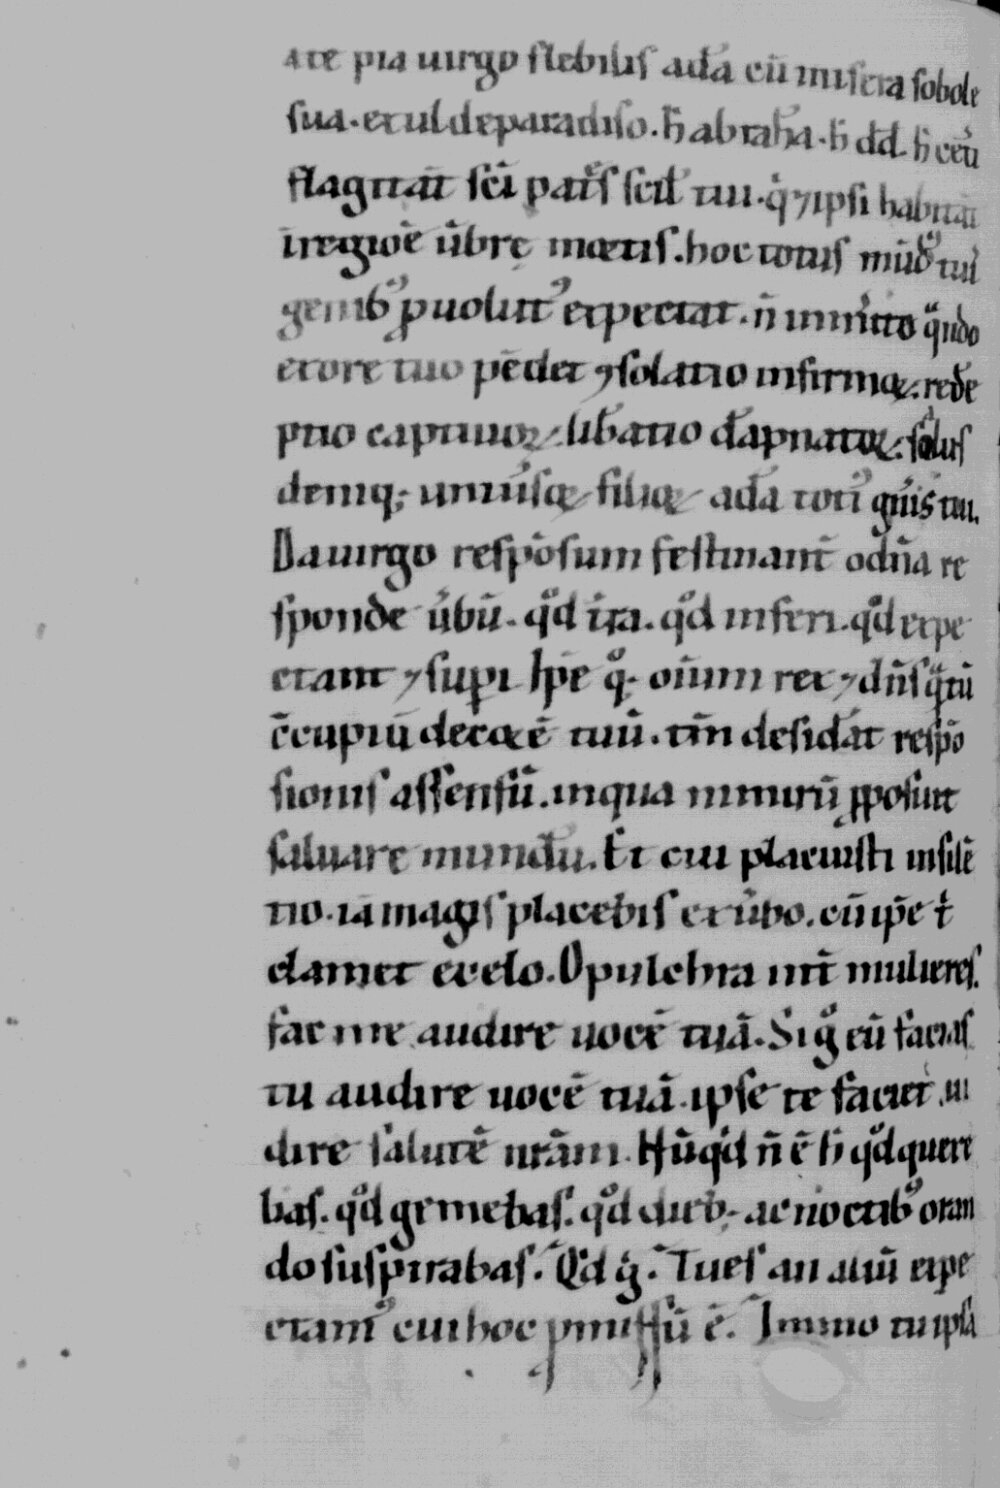 a te pia uirgo flebilis adā cū misera sobole
sua. exul de paradiso. h̄ abrahā. h̄ dd̄. h̄ cet̄i
flagitāt sc̄i patr̄s scil̄ tui. q̇ ⁊ ipsi habitāt
ī regiōe ūbrę mortis. hoc totus mūdꝰ tuiˢ
genibꝰ ꝓuolutꝰ expectat. n̄ inmerito qn̄do
ex ore tuo pēdet ꝯsolatio infirmoꝝ. redē
ptio captiuoꝝ. lib̄atio dāpnatoꝝ. salus
deniq; uniuersoꝝ filioꝝ adā totiꝰ gn̄is tui.
Da uirgo respōsum festinant̄ o dn̄a re
sponde ūbū. qd̄ t̄ra. qd̄ inferi. qd̄ expe
ctant ⁊ suꝑi Ip̄e q̊q; om̄ium rex ⁊ dn̄s qͣtū
c̄cupiuit decorē tuū. tm̄ desid̄at respō
sionis assensū. in qua nimirū ꝓposuit
saluare mundū. Et cui placuisti in silē
tio. iā magis placebis ex ūbo. cū ip̄e t̄
clamet e celo. O pulchra int̄ mulieres.
fac me audire uocē tuā. Si g̊ eū facias
tu audire uocē tuā. ipse te faciet ui
dire salutē nr̄am. Nūqd̄ n̄ ē h̄ qd̄ quere
bas. qd̄ gemebas. qd̄ dieb; ac noctibꝰ oran
do suspirabas. Qd̄ g̊. Tu es an aliū expe
ctamꝰ cui hoc ꝓmissū ē. Immo tu ipsa